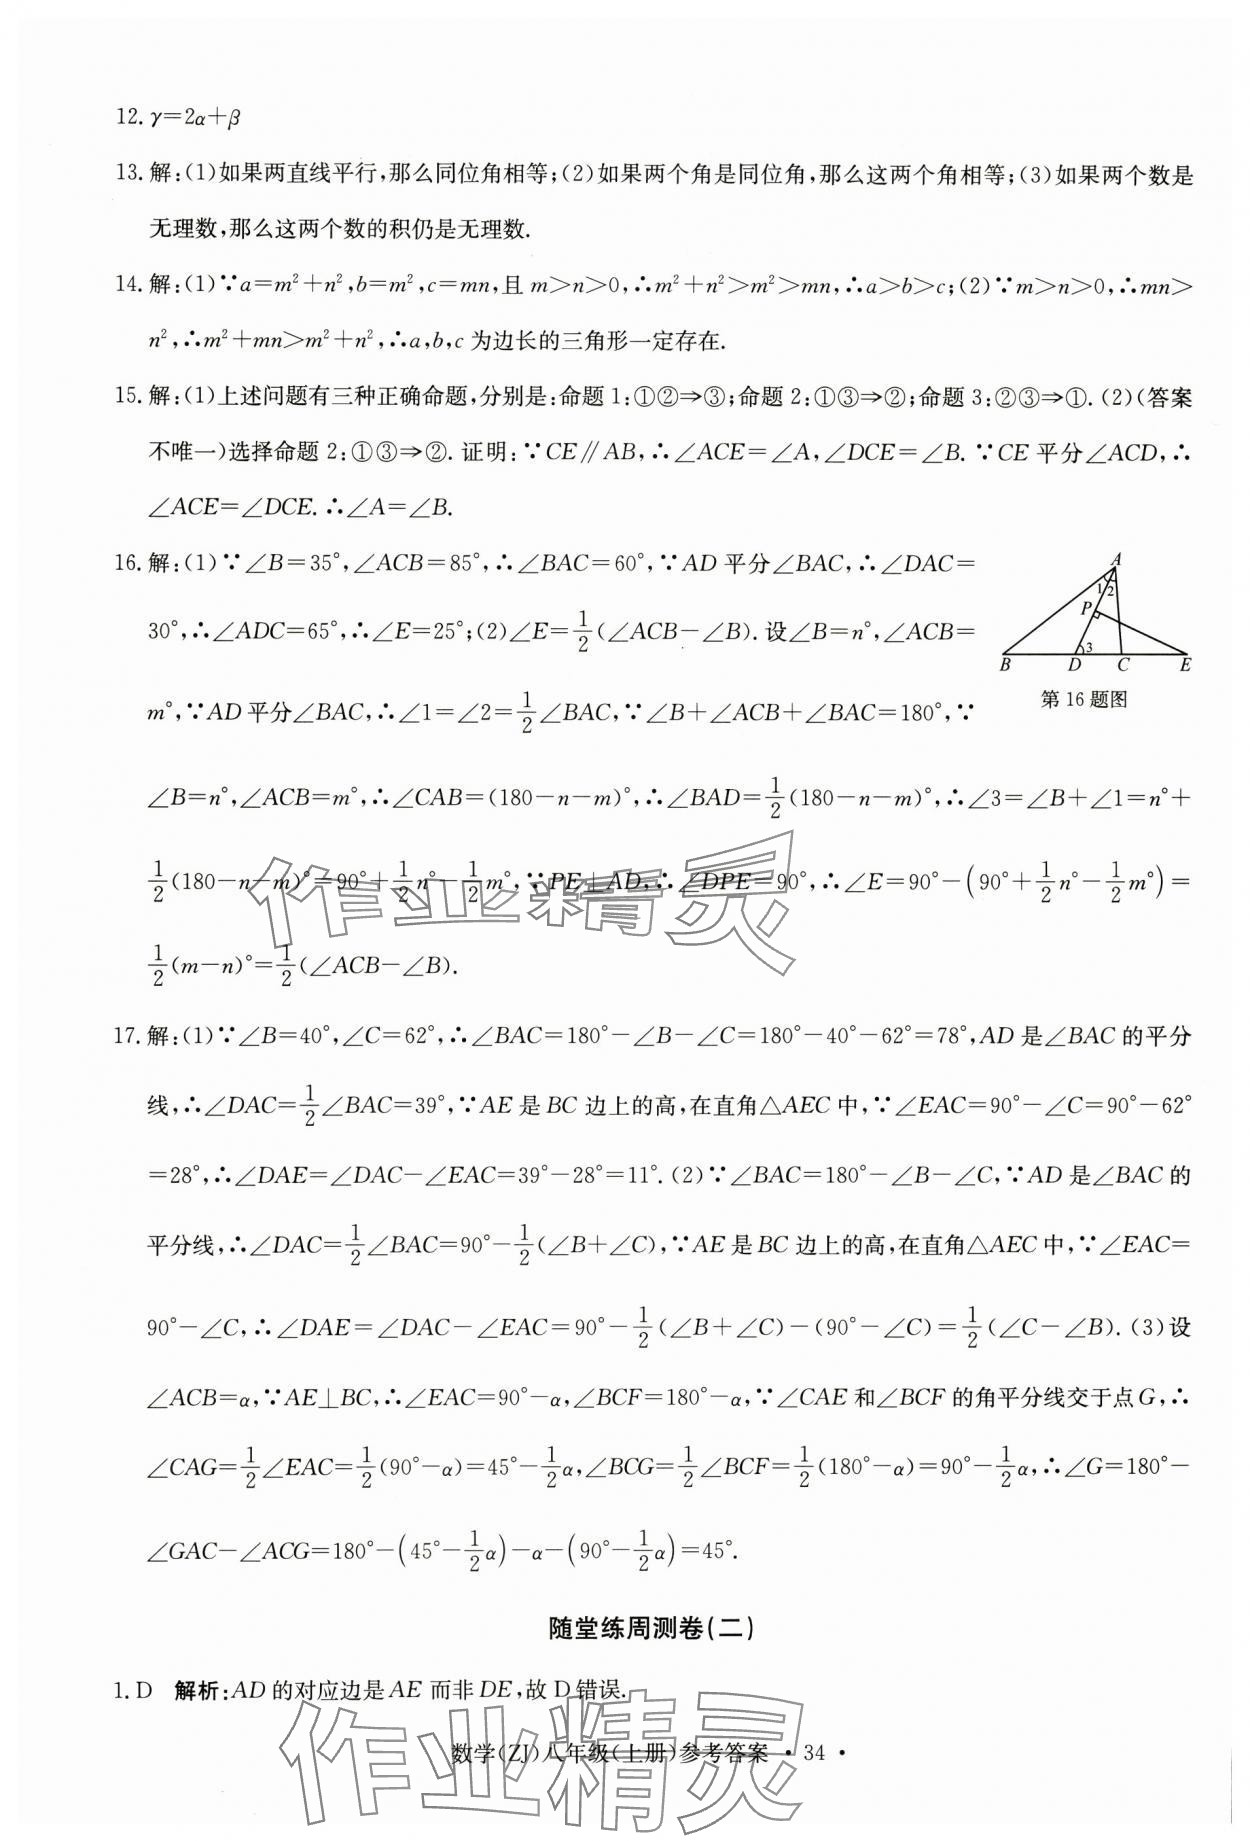 12. γ=2α+β
13. 解:(1)如果两直线平行,那么同位角相等;(2)如果两个角是同位角,那么这两个角相等;(3)如果两个数是
无理数,那么这两个数的积仍是无理数.
14. 解:(1)∵a=m²+n²,b=m²,c=mn,且 m>n>0,∴m²+n²>m²>mn,∴a>b>c;(2)∵m>n>0,∴mn>
n²,∴m²+mn>m²+n²,∴a,b,c 为边长的三角形一定存在.
15. 解:(1)上述问题有三种正确命题,分别是:命题 1:①②⇒③;命题 2:①③⇒②;命题 3:②③⇒①.(2)(答案
不唯一)选择命题 2:①③⇒②. 证明:∵CE∥AB,∴∠ACE=∠A,∠DCE=∠B. ∵CE 平分∠ACD,∴
∠ACE=∠DCE. ∴∠A=∠B.
16. 解:(1)∵∠B=35°,∠ACB=85°,∴∠BAC=60°,∵AD 平分∠BAC,∴∠DAC=
30°,∴∠ADC=65°,∴∠E=25°;(2)∠E=1/2(∠ACB-∠B). 设∠B=n°,∠ACB=
m°,∵AD 平分∠BAC,∴∠1=∠2=1/2∠BAC,∵∠B+∠ACB+∠BAC=180°,∵
A
1 2
P
3
B D C E
第 16 题图
∠B=n°,∠ACB=m°,∴∠CAB=(180-n-m)°,∴∠BAD=1/2(180-n-m)°,∴∠3=∠B+∠1=n°+
1/2(180-n-m)°=90°+1/2n°-1/2m°,∵PE⊥AD,∴∠DPE=90°,∴∠E=90°-(90°+1/2n°-1/2m°)=
1/2(m-n)°=1/2(∠ACB-∠B).
17. 解:(1)∵∠B=40°,∠C=62°,∴∠BAC=180°-∠B-∠C=180°-40°-62°=78°,AD 是∠BAC 的平分
线,∴∠DAC=1/2∠BAC=39°,∵AE 是 BC 边上的高,在直角△AEC 中,∵∠EAC=90°-∠C=90°-62°
=28°,∴∠DAE=∠DAC-∠EAC=39°-28°=11°.(2)∵∠BAC=180°-∠B-∠C,∵AD 是∠BAC 的
平分线,∴∠DAC=1/2∠BAC=90°-1/2(∠B+∠C),∵AE 是 BC 边上的高,在直角△AEC 中,∵∠EAC=
90°-∠C,∴∠DAE=∠DAC-∠EAC=90°-1/2(∠B+∠C)-(90°-∠C)=1/2(∠C-∠B).(3)设
∠ACB=α,∵AE⊥BC,∴∠EAC=90°-α,∠BCF=180°-α,∵∠CAE 和∠BCF 的角平分线交于点 G,∴
∠CAG=1/2∠EAC=1/2(90°-α)=45°-1/2α,∠BCG=1/2∠BCF=1/2(180°-α)=90°-1/2α,∴∠G=180°-
∠GAC-∠ACG=180°-(45°-1/2α)-α-(90°-1/2α)=45°.
随堂练周测卷(二)
1. D 解析:AD 的对应边是 AE 而非 DE,故 D 错误.
数学(ZJ)八年级(上册)参考答案 · 34 ·
作业精灵
作业精灵